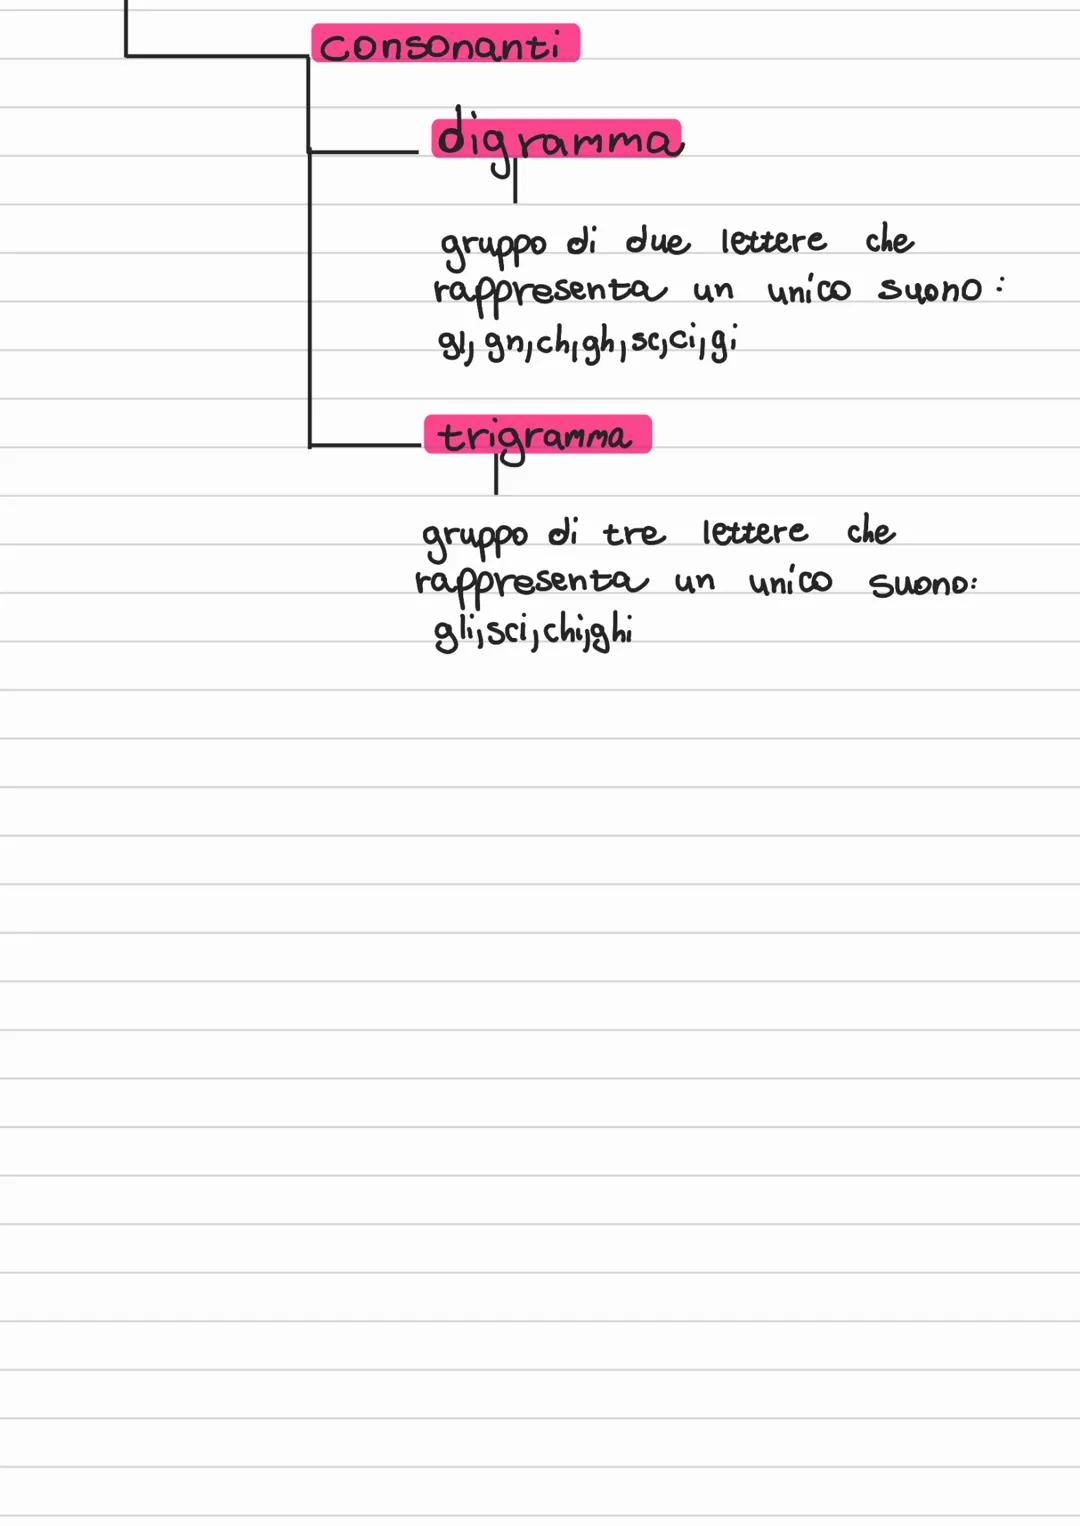 consonanti
digramma
gruppo di due lettere che
rappresenta un unico suono:
gl, gn, ch, gh, sc, ci, gi
trigramma
gruppo di tre lettere che
rappresenta un unico suono:
gli, sci, chi, ghi